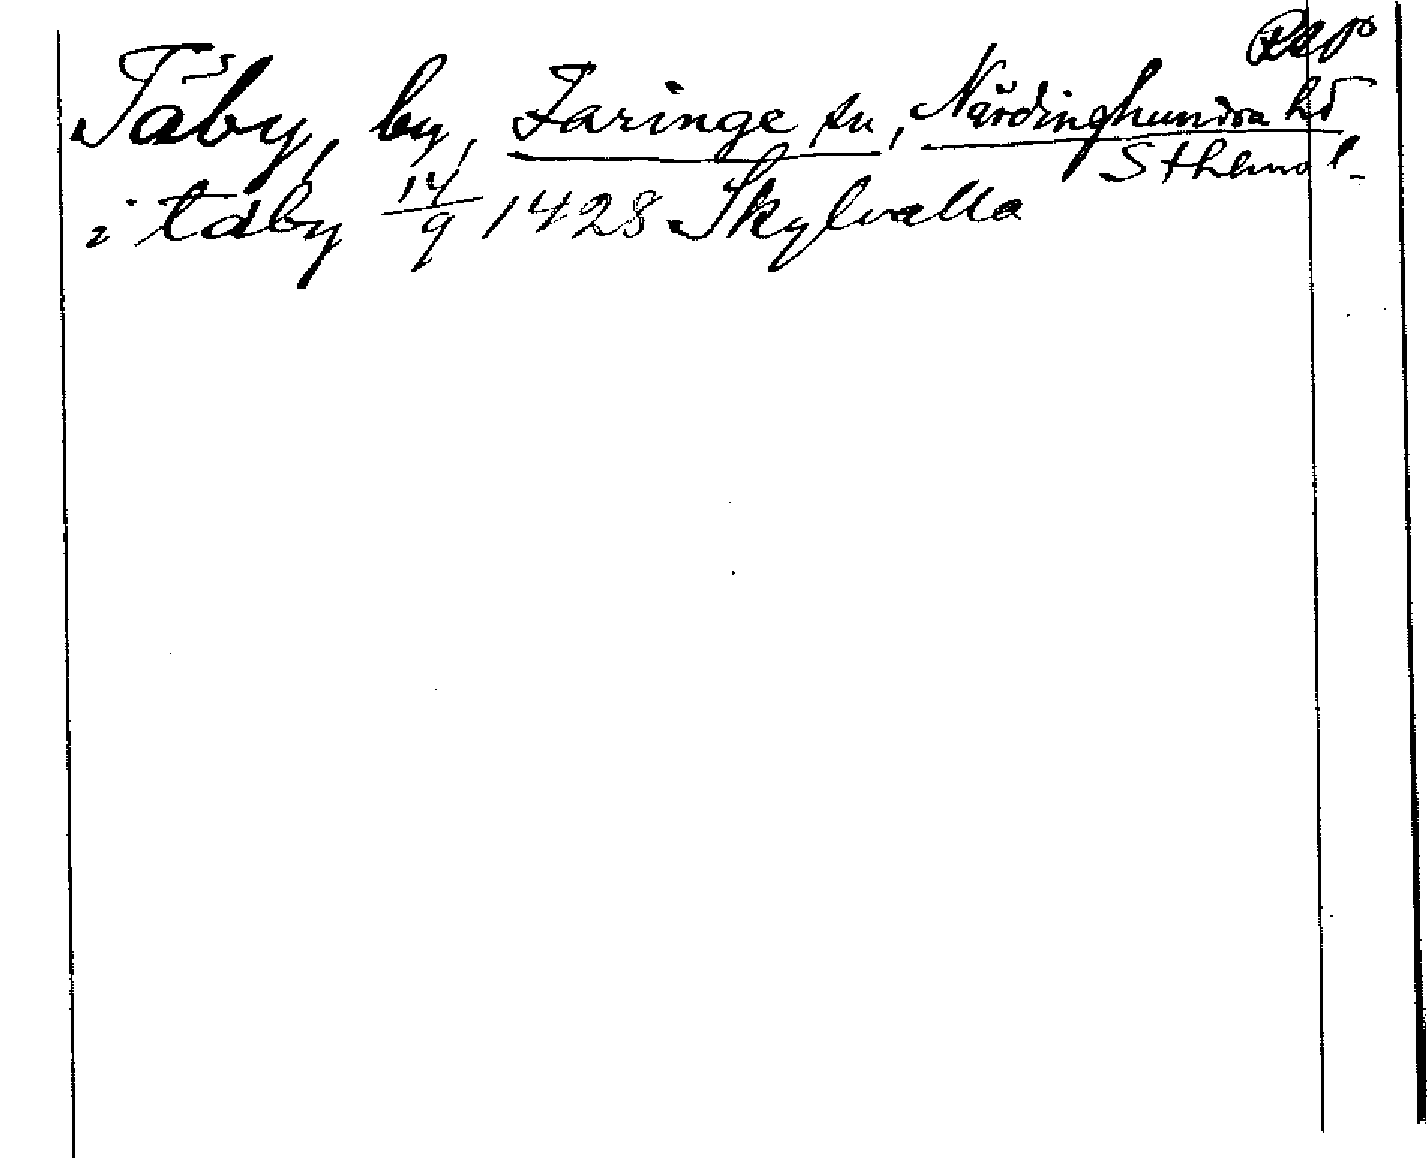 Rep
Täby, by, Faringe sn, Närdinghundra hd
Sthlms l.
i täby 14/9 1428 Skylvalla